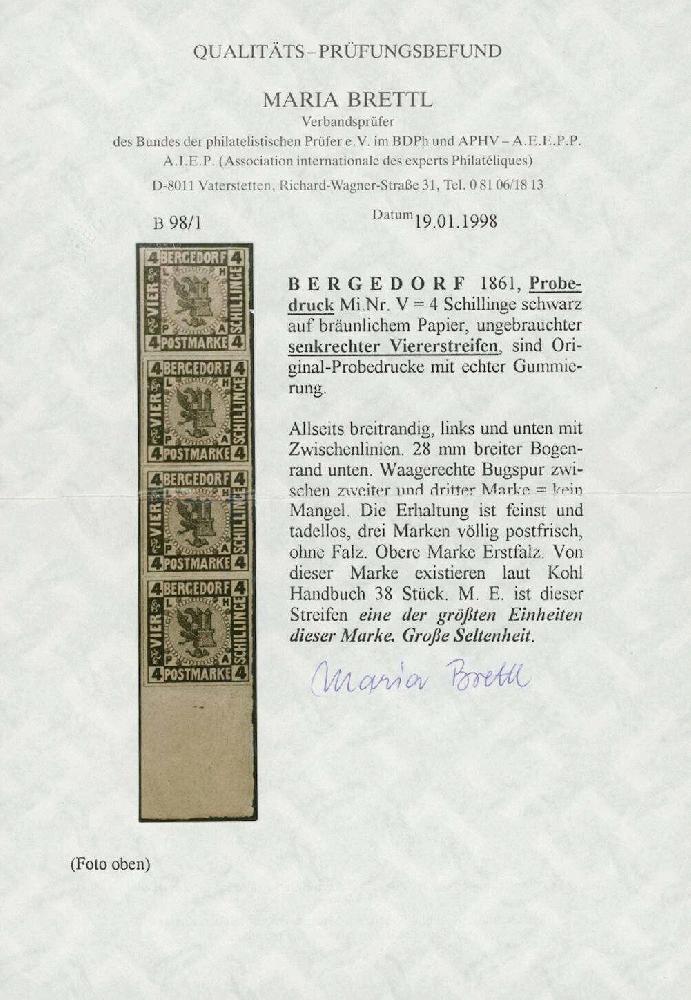 QUALITÄTS–PRÜFUNGSBEFUND
MARIA BRETTL
Verbandsprüfer
des Bundes der philatelistischen Prüfer e.V. im BDPh und APHV – A.E.E.P.P.
A.I.E.P. (Association internationale des experts Philatéliques)
D-8011 Vaterstetten, Richard-Wagner-Straße 31, Tel. 0 81 06/18 13
B 98/1
Datum 19.01.1998
4 BERGEDORF 4
VIER
SCHILLINGE
L H
P A
4 POSTMARKE 4
4 BERGEDORF 4
VIER
SCHILLINGE
L H
P A
4 POSTMARKE 4
4 BERGEDORF 4
VIER
SCHILLINGE
L H
P A
4 POSTMARKE 4
4 BERGEDORF 4
VIER
SCHILLINGE
L H
P A
4 POSTMARKE 4
BERGEDORF 1861, Probe-
druck Mi.Nr. V = 4 Schillinge schwarz
auf bräunlichem Papier, ungebrauchter
senkrechter Viererstreifen, sind Ori-
ginal-Probedrucke mit echter Gummie-
rung.
Allseits breitrandig, links und unten mit
Zwischenlinien. 28 mm breiter Bogen-
rand unten. Waagerechte Bugspur zwi-
schen zweiter und dritter Marke = kein
Mangel. Die Erhaltung ist feinst und
tadellos, drei Marken völlig postfrisch,
ohne Falz. Obere Marke Erstfalz. Von
dieser Marke existieren laut Kohl
Handbuch 38 Stück. M. E. ist dieser
Streifen eine der größten Einheiten
dieser Marke. Große Seltenheit.
Maria Brettl
(Foto oben)